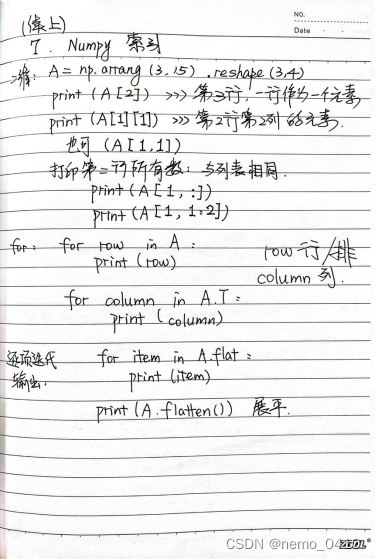 NO.
Date
(续上)
7. Numpy 索引
二维: A = np.arrang (3,15) .reshape (3,4)
print (A[2]) >>> 第三行,一行作为一个元素
print (A[1][1]) >>> 第2行第2列的元素.
也可 (A[1,1])
打印第二行所有数: 与列表相同.
print (A[1,:])
print (A[1, 1:2])
for: for row in A:
print (row)
row 行/排
column 列.
for column in A.T:
print (column)
逐项迭代
输出.
for item in A.flat:
print (item)
print (A.flatten()) 展平.
CSDN @nemo_04